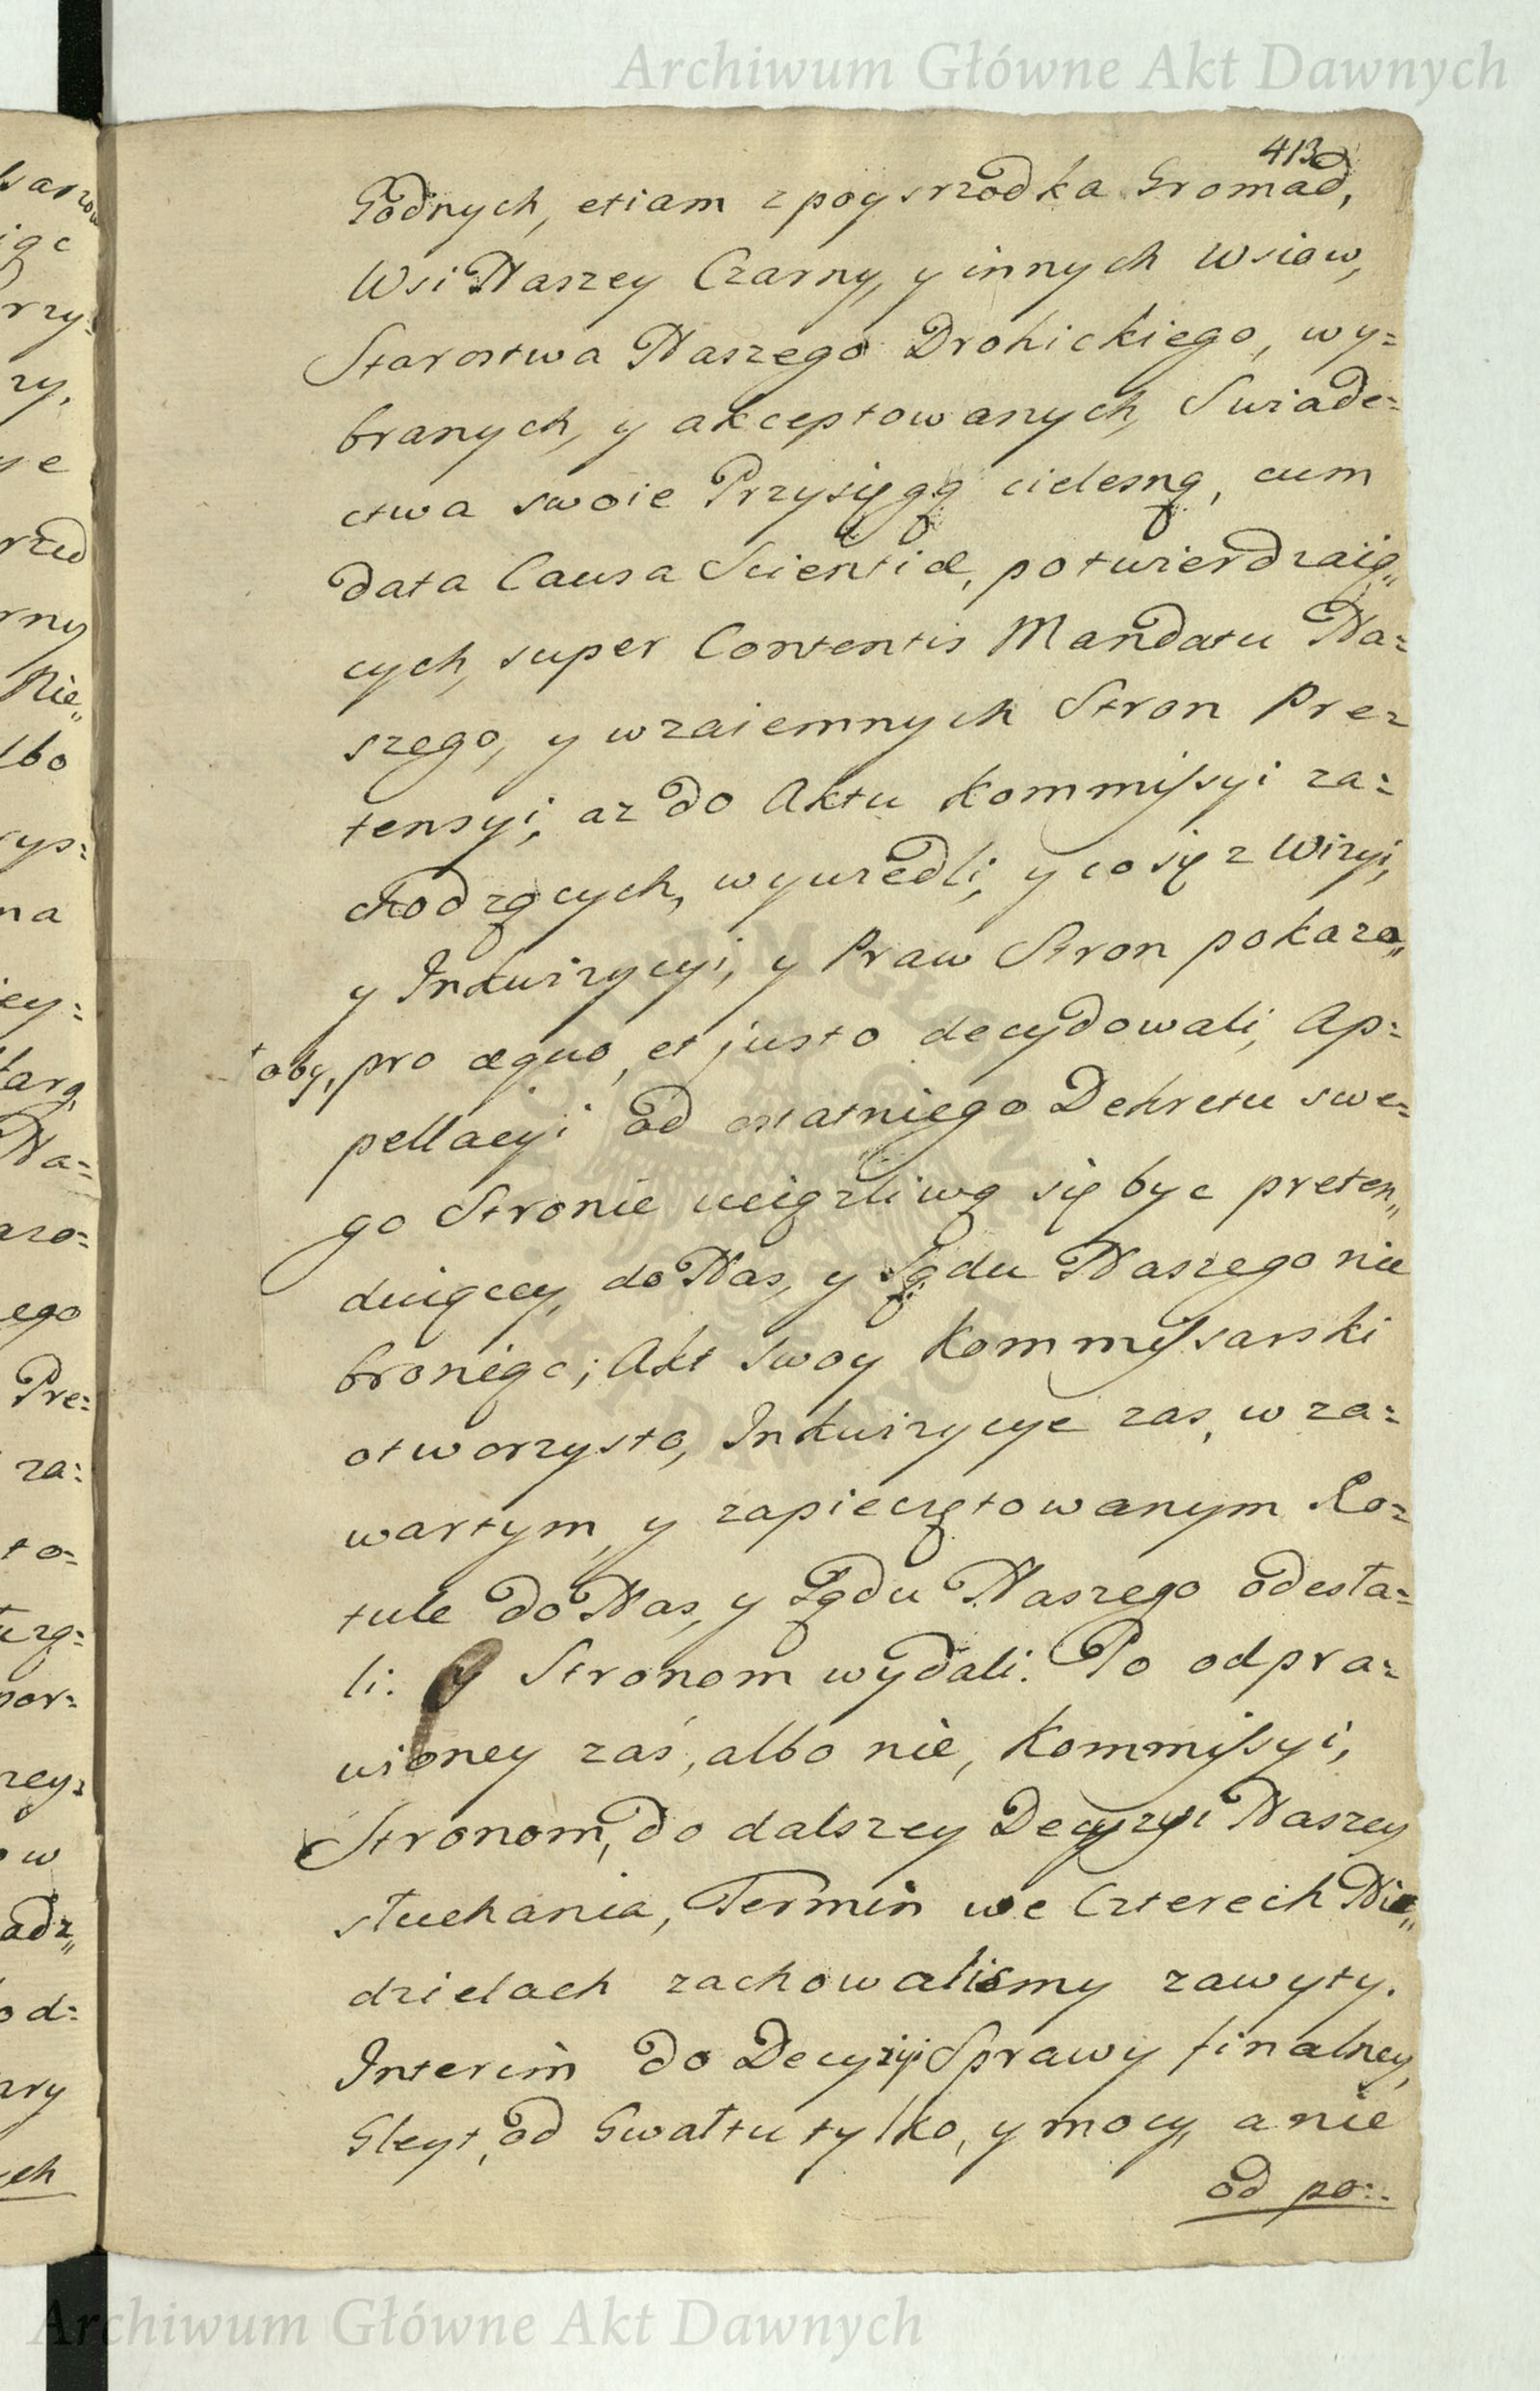 Archiwum Główne Akt Dawnych
413
Godnych, etiam z poysrzodka Gromad,
Wsi Naszey Czarny, y innych Wsiow,
Starostwa Naszego Drohickiego, wy=
branych, y akceptowanych, Swiade=
ctwa swoie Przysięgą cielesną, cum
data Causa Scientiæ, potwierdzaią„
cych, super Contentis Mandatu Na=
szego, y wzaiemnych Stron Pre=
tensyi, az do Aktu Kommissyi za=
chodzących, wywiedli, y co się z Wizyi,
y Inkwizycyi, y Praw Stron pokaza„
łoby, pro æquo, et justo decydowali, Ap=
pellacyi od ostatniego Dekretu swe=
go Stronie uciążliwą się byc preten„
duiącey, do Nas, y Sądu Naszego nie
broniąc; Akt swoy Kommissarski
otworzysto, Inkwizycye zas, w za=
wartym, y zapieczętowanym Ro=
tule do Nas, y Sądu Naszego odesła=
li. y Stronom wydali. Po odpra=
wioney zaś, albo nie, Kommissyi,
Stronom, do dalszey Decyzyi Naszey
słuchania, Termin we Czterech Nie„
dzielach zachowalismy zawyty.
Interim do Decyzyi Sprawy finalney,
Gleyt, od Gwałtu tylko, y mocy, a nie
od po=
Archiwum Główne Akt Dawnych